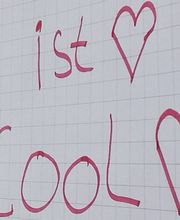 ist ♡
COOL